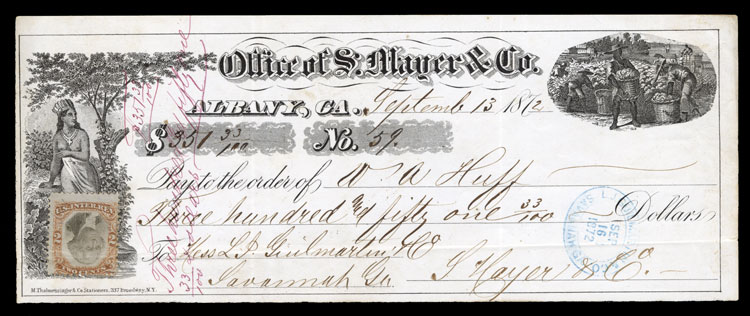 Office of S. Mayer & Co.
ALBANY, GA., September 13 1872
$351 33/100 No. 59.
Pay to the order of W A Huff
Three hundred & fifty one 33/100 Dollars
To Mess L. J. Guilmartin & Co
Savannah Ga S Mayer & Co.
U.S. INTER. REV.
TWO CENTS
SEP
16
1872
M. Thalmessinger & Co. Stationers, 387 Broadway, N.Y.